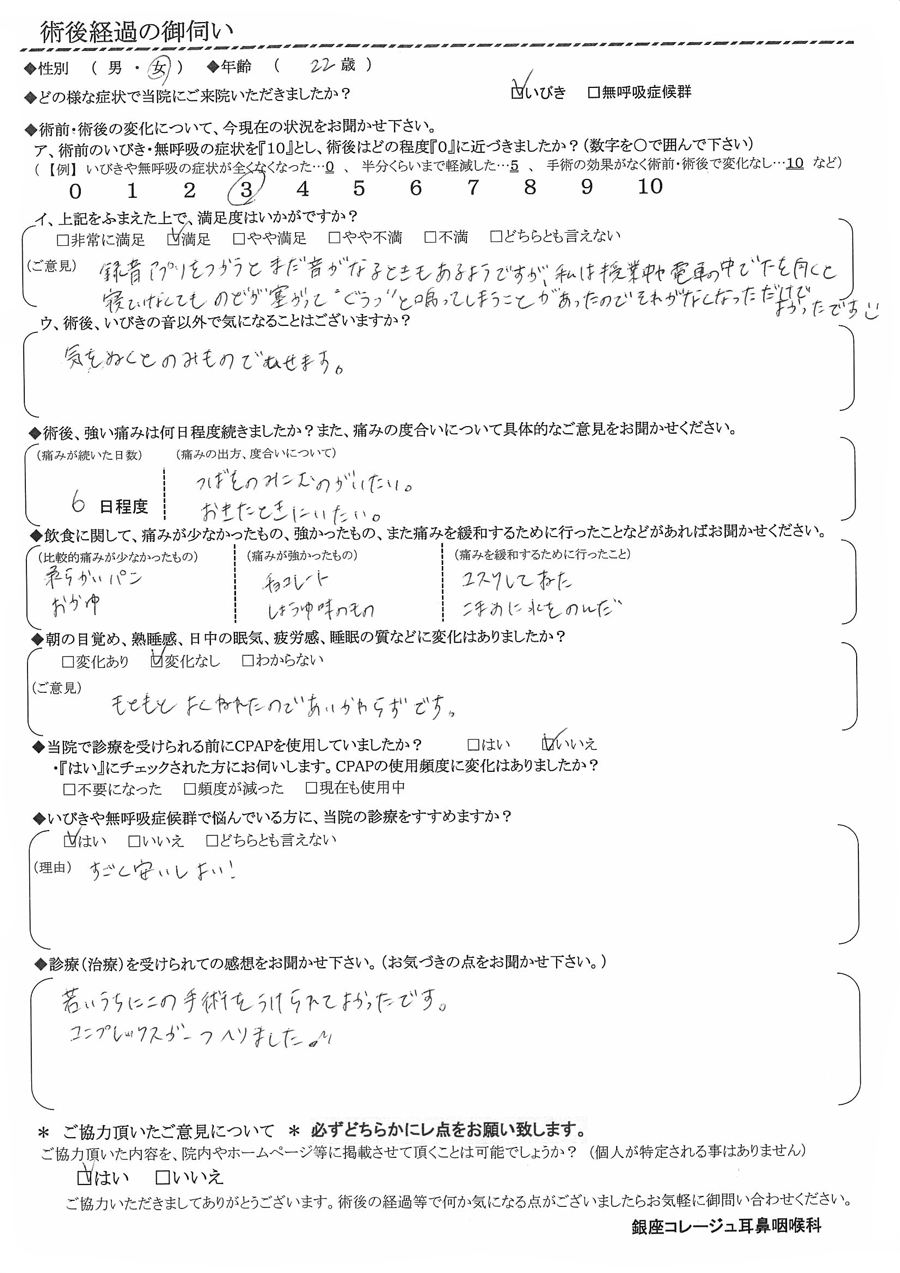 術後経過の御伺い
◆性別 （ 男 ・ 女 ） ◆年齢 （ 22 歳 ）
◆どの様な症状で当院にご来院いただきましたか？ ☑いびき □無呼吸症候群
◆術前・術後の変化について、今現在の状況をお聞かせ下さい。
ア、術前のいびき・無呼吸の症状を『10』とし、術後はどの程度『0』に近づきましたか？（数字を○で囲んで下さい）
（【例】 いびきや無呼吸の症状が全くなくなった…0 、 半分くらいまで軽減した…5 、 手術の効果がなく術前・術後で変化なし…10 など）
0 1 2 3 4 5 6 7 8 9 10
イ、上記をふまえた上で、満足度はいかがですか？
□非常に満足 ☑満足 □やや満足 □やや不満 □不満 □どちらとも言えない
（ご意見） 録音アプリをつかうとまだ音がなるときもあるようですが、私は授業中や電車の中で下を向くと
寝ていなくてものどが塞がって"ぐうっ"と鳴ってしまうことがあったのでそれがなくなっただけで
よかったです
ウ、術後、いびきの音以外で気になることはございますか？
気をぬくとのみものでむせます。
◆術後、強い痛みは何日程度続きましたか？また、痛みの度合いについて具体的なご意見をお聞かせください。
（痛みが続いた日数） （痛みの出方、度合いについて）
つばをのみこむのがいたい。
6 日程度
おきたときにいたい。
◆飲食に関して、痛みが少なかったもの、強かったもの、また痛みを緩和するために行ったことなどがあればお聞かせください。
（比較的痛みが少なかったもの） （痛みが強かったもの） （痛みを緩和するために行ったこと）
柔らかいパン チョコレート してねた
おかゆ しょうゆ味のもの こまめに水をのんだ
◆朝の目覚め、熟睡感、日中の眠気、疲労感、睡眠の質などに変化はありましたか？
□変化あり ☑変化なし □わからない
（ご意見）
もともとよくねれたのであいかわらずです。
◆当院で診療を受けられる前にCPAPを使用していましたか？ □はい ☑いいえ
・『はい』にチェックされた方にお伺いします。CPAPの使用頻度に変化はありましたか？
□不要になった □頻度が減った □現在も使用中
◆いびきや無呼吸症候群で悩んでいる方に、当院の診療をすすめますか？
☑はい □いいえ □どちらとも言えない
（理由） すごく安いしよい！
◆診療（治療）を受けられての感想をお聞かせ下さい。（お気づきの点をお聞かせ下さい。）
若いうちにこの手術をうけられてよかったです。
コンプレックスが一つへりました♪
＊ ご協力頂いたご意見について ＊ 必ずどちらかにレ点をお願い致します。
ご協力頂いた内容を、院内やホームページ等に掲載させて頂くことは可能でしょうか？（個人が特定される事はありません）
☑はい □いいえ
ご協力いただきましてありがとうございます。術後の経過等で何か気になる点がございましたらお気軽に御問い合わせください。
銀座コレージュ耳鼻咽喉科